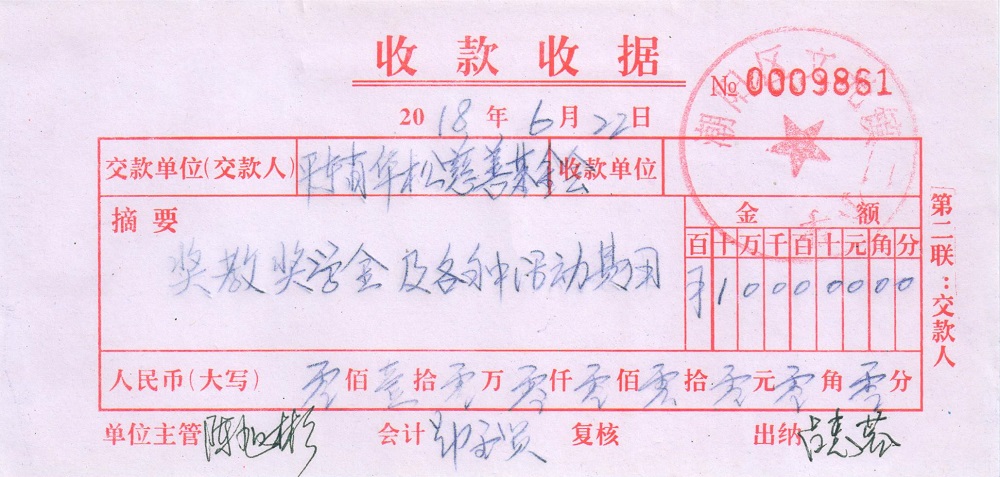 收款收据
№ 0009861
2018年6月22日
交款单位(交款人) 陈育华松慈善基金会 收款单位
摘要 金额
百十万千百十元角分
奖教奖学金及各种活动费用 ¥10000000
人民币(大写) 零佰壹拾零万零仟零佰零拾零元零角零分
单位主管 陈旭彬 会计 复核 出纳
第二联:交款人
潮阳区文光